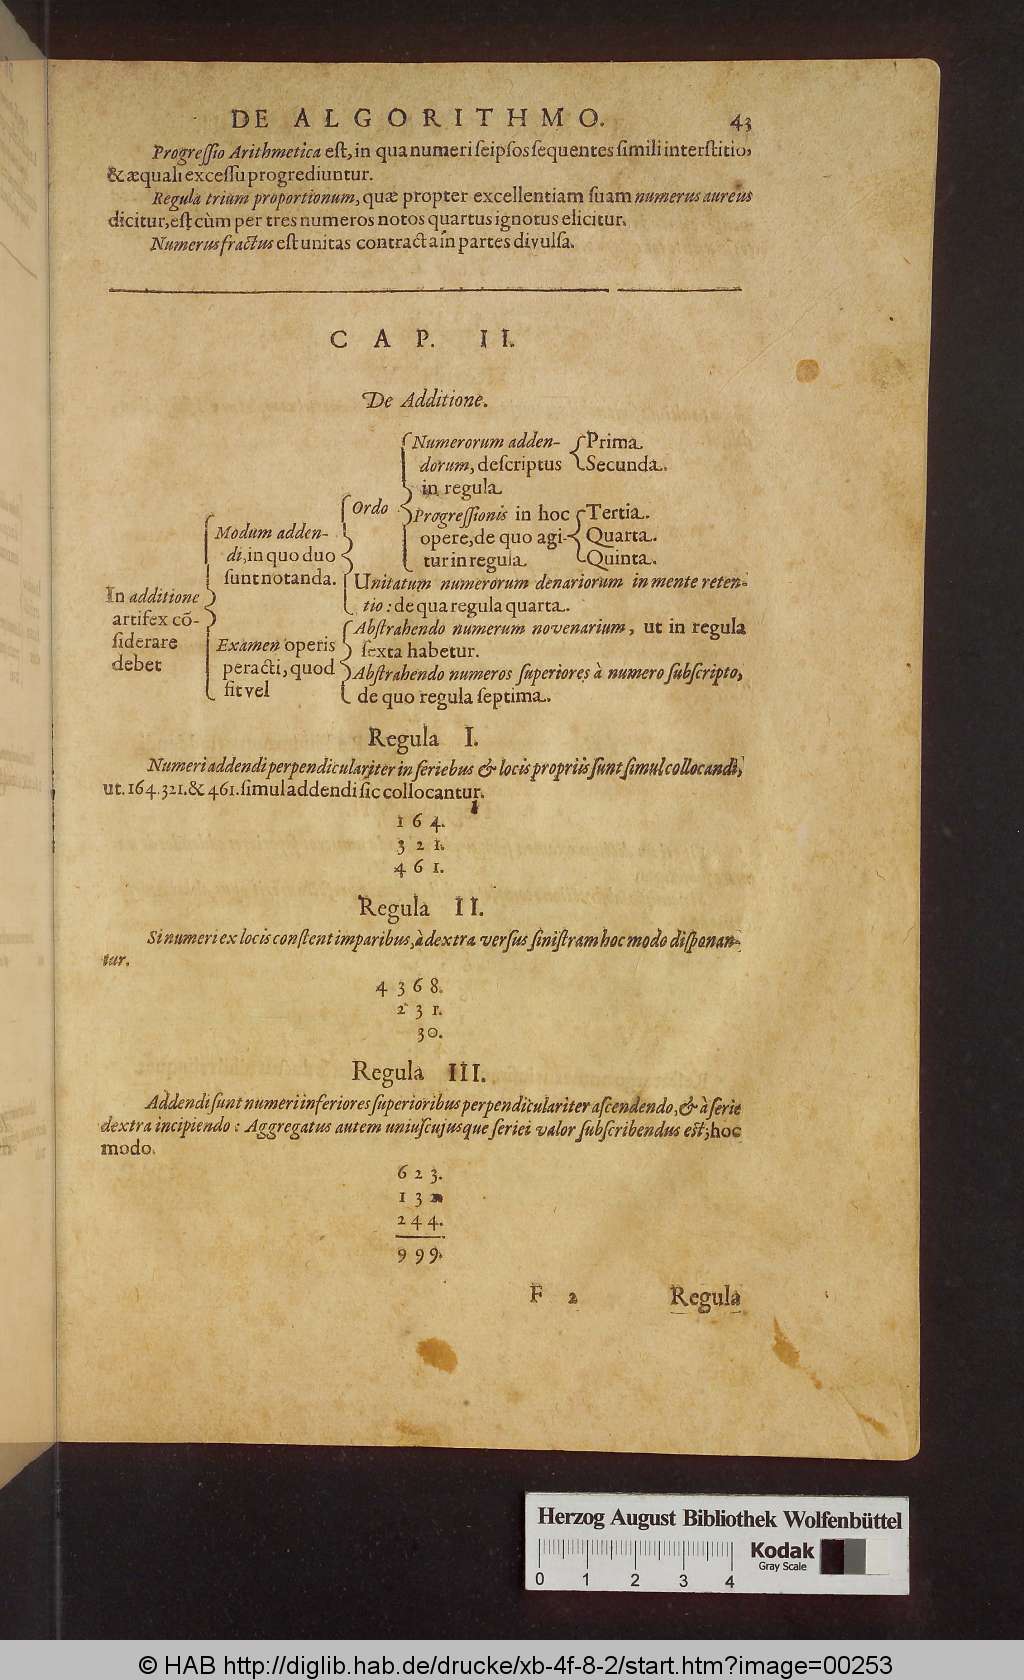 DE ALGORITHMO. 43
Progreſſio Arithmetica eſt, in qua numeri ſeipſos ſequentes ſimili interſtitio,
& æquali exceſſu progrediuntur.
Regula trium proportionum, quæ propter excellentiam ſuam numerus aureus
dicitur, eſt cùm per tres numeros notos quartus ignotus elicitur.
Numerus fractus eſt unitas contracta in partes divulſa.
CAP. II.
De Additione.
In additione
artifex cõ-
ſiderare
debet
Modum adden-
di, in quo duo
ſunt notanda.
Ordo
Numerorum adden-
dorum, deſcriptus
in regula
Prima.
Secunda.
Progreſſionis in hoc
opere, de quo agi-
tur in regula
Tertia.
Quarta.
Quinta.
Unitatum numerorum denariorum in mente reten-
tio: de qua regula quarta.
Examen operis
peracti, quod
fit vel
Abſtrahendo numerum novenarium, ut in regula
ſexta habetur.
Abſtrahendo numeros ſuperiores à numero ſubſcripto,
de quo regula ſeptima.
Regula I.
Numeri addendi perpendiculariter in ſeriebus & locis propriis ſunt ſimul collocandi,
ut. 164. 321. & 461. ſimul addendi ſic collocantur.
1 6 4.
3 2 1.
4 6 1.
Regula II.
Si numeri ex locis conſtent imparibus, à dextra verſus ſiniſtram hoc modo diſponan-
tur.
4 3 6 8.
2 3 1.
3 0.
Regula III.
Addendi ſunt numeri inferiores ſuperioribus perpendiculariter aſcendendo, & à ſerie
dextra incipiendo: Aggregatus autem uniuſcujusque ſeriei valor ſubſcribendus eſt, hoc
modo.
6 2 3.
1 3
2 4 4.
9 9 9.
F 2 Regula
Herzog August Bibliothek Wolfenbüttel
Kodak
Gray Scale
0 1 2 3 4
© HAB http://diglib.hab.de/drucke/xb-4f-8-2/start.htm?image=00253